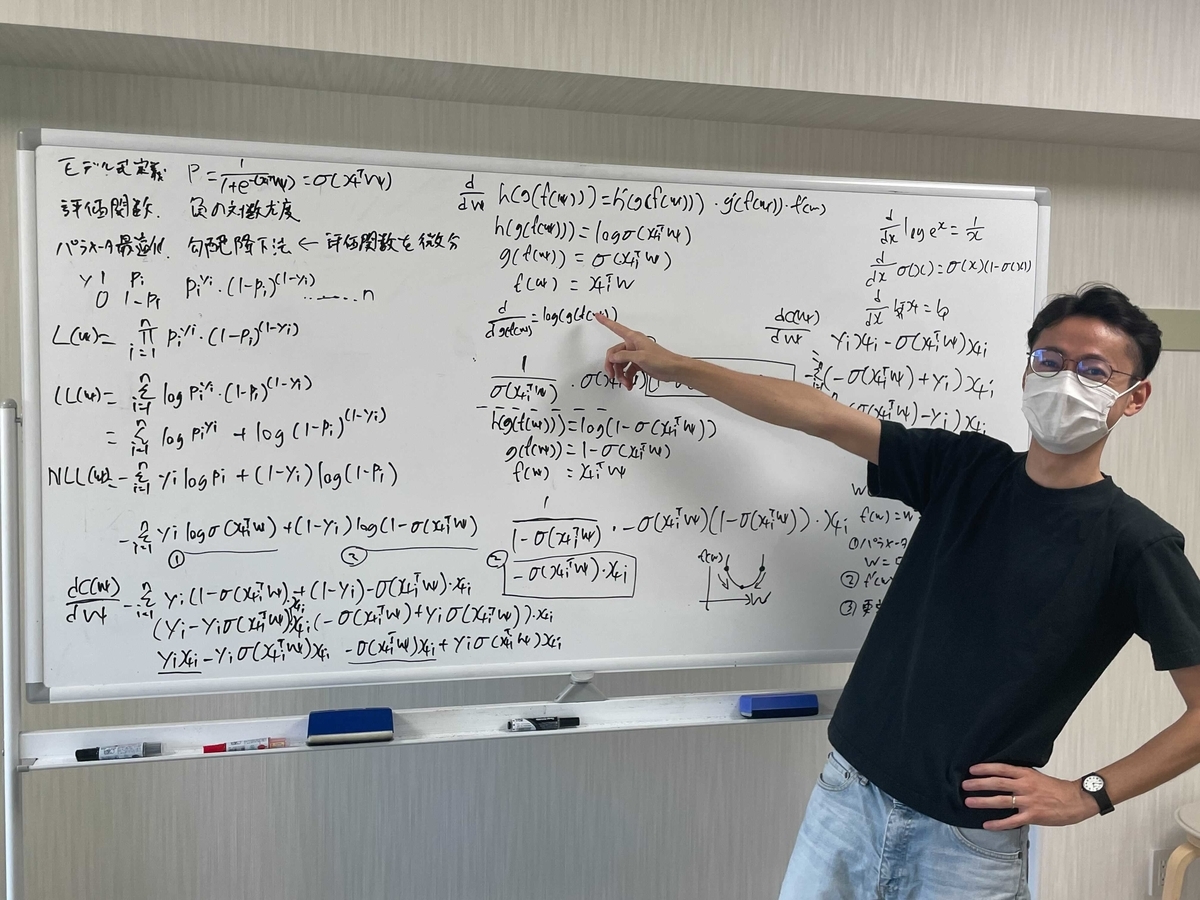 モデル式定義 P = 1/(1+e^-(x_i^T w)) = σ(x_i^T w)
評価関数. 負の対数尤度
パラメータ最適化. 勾配降下法 ← 評価関数を微分
y 1 Pi
0 1-Pi Pi^yi・(1-Pi)^(1-yi) ...... n
L(w)= Π_{i=1}^n Pi^yi・(1-Pi)^(1-yi)
LL(w)= Σ_{i=1}^n log Pi^yi・(1-Pi)^(1-yi)
= Σ_{i=1}^n log Pi^yi + log (1-Pi)^(1-yi)
NLL(w)= -Σ_{i=1}^n yi log Pi + (1-yi) log (1-Pi)
-Σ_{i=1}^n yi log σ(x_i^T w) + (1-yi) log (1-σ(x_i^T w))
① ②
dC(w)/dw -Σ_{i=1}^n yi (1-σ(x_i^T w)) xi + (1-yi) -σ(x_i^T w)・xi
(yi - yi σ(x_i^T w)) xi (-σ(x_i^T w) + yi σ(x_i^T w))・xi
yi xi - yi σ(x_i^T w) xi -σ(x_i^T w) xi + yi σ(x_i^T w) xi
d/dw h(g(f(w))) = h'(g(f(w)))・g'(f(w))・f'(w)
h(g(f(w))) = log σ(x_i^T w)
g(f(w)) = σ(x_i^T w)
f(w) = x_i^T w
d/dg(f(w)) = log(g(f(w)))
1/σ(x_i^T w)・σ(x_i^T w)
h(g(f(w))) = log(1-σ(x_i^T w))
g(f(w)) = 1-σ(x_i^T w)
f(w) = x_i^T w
1/(1-σ(x_i^T w))・-σ(x_i^T w)(1-σ(x_i^T w))・xi
② -σ(x_i^T w)・xi
f(w)
w
d/dx log e^x = 1/x
d/dx σ(x) = σ(x)(1-σ(x))
d/dx
dC(w)/dw = yi xi - σ(x_i^T w) xi
(-σ(x_i^T w) + yi) xi
σ(x_i^T w) - yi) xi
w
f(w) = w
① パラメータ
w =
② f'(w)
③